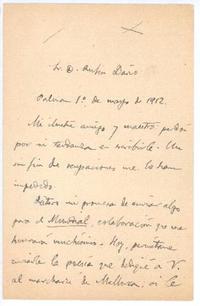 Sr. D. Rubén Darío
Palma 1º de mayo de 1912.
Mi ilustre amigo y maestro: perdón
por mi tardanza en escribirle. Un
sin fin de ocupaciones me lo han
impedido.
mi promesa de enviar algo
para el Mundial, colaboración que me
honrará muchísimo. Hoy, permítame
enviarle la poesía que dediqué a V.
al marcharse de Mallorca, si le